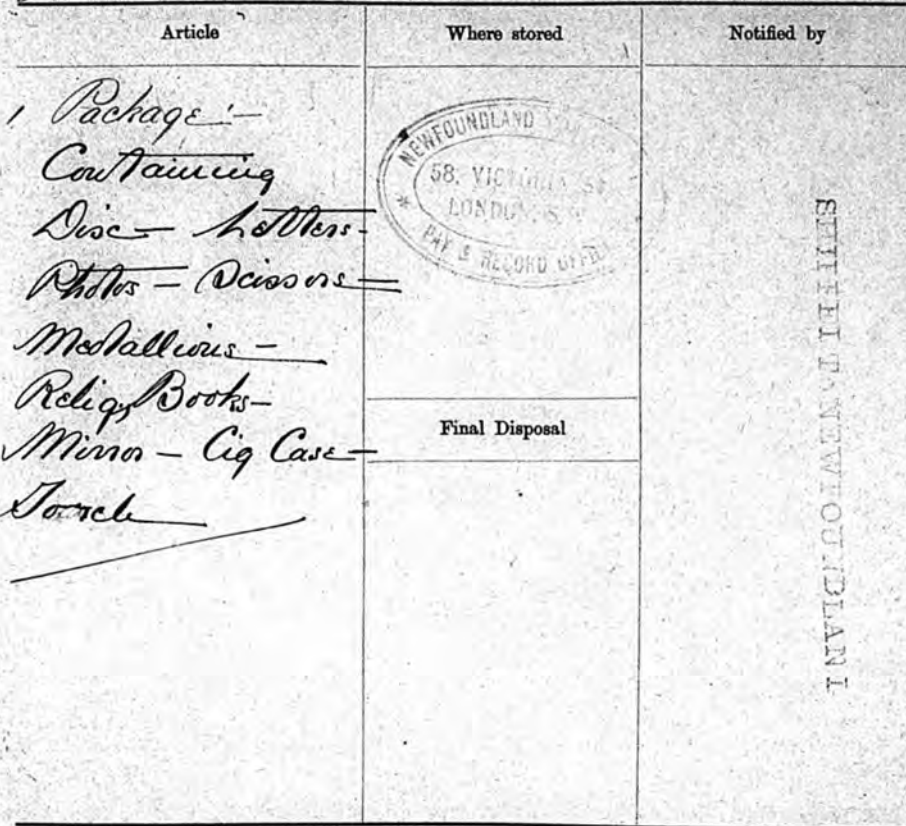 Article
1 Package:-
Containing
Disc - Letters -
Photos - Scissors -
Medallions -
Relig. Books -
Mirror - Cig Case -
Torch
Where stored
NEWFOUNDLAND
58, VICTORIA ST
LONDON, S.W.
PAY & RECORD OFFICE
Final Disposal
Notified by
NEWFOUNDLAND